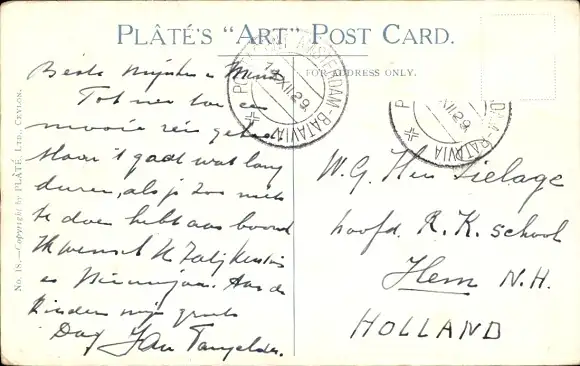 PLÂTÉ'S "ART" POST CARD.
FOR ADDRESS ONLY.
No. 18.—Copyright by PLÂTÉ, LTD., CEYLON.
AMSTERDAM-BATAVIA
14 XII.29
XII.29
BATAVIA
Beste Mijnheer
Tot nu toe een
mooie reis gehad
Maar 't gaat wat lang
duren, als je zoo niets
te doen hebt aan boord
Ik wensch U Zalig Kerstmis
en Nieuwjaar. Aan de
kinderen mijn groets
Dag Jan
W. G. Hen
hoofd. R. K. school
Hem N.H.
HOLLAND